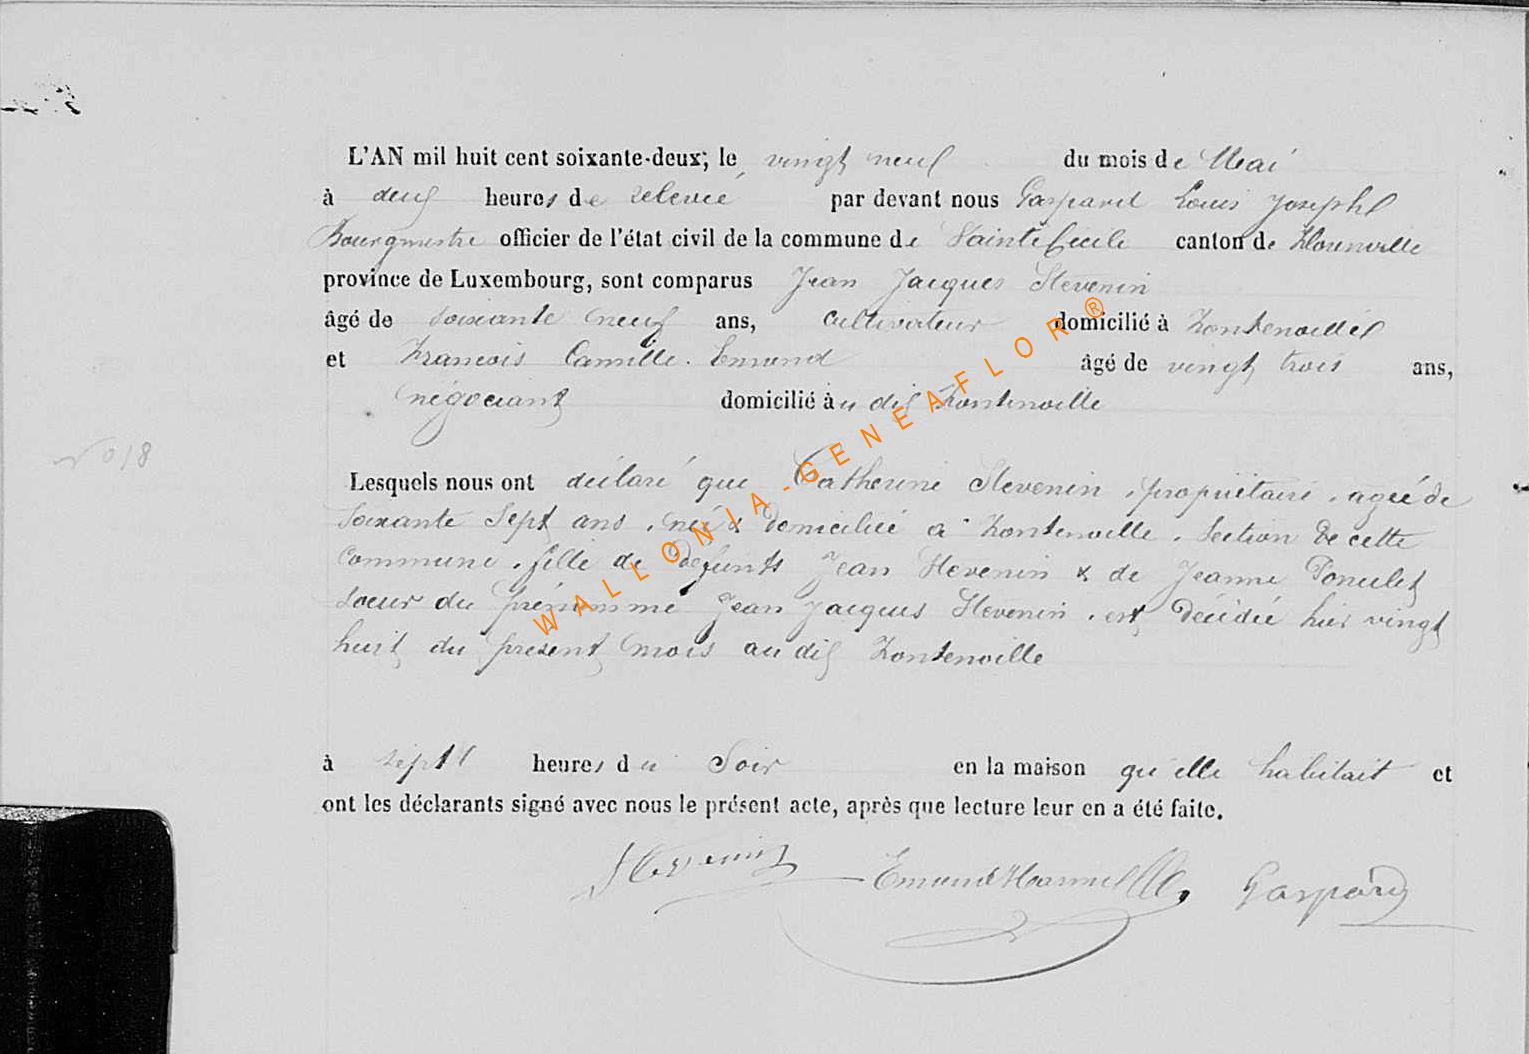 L'AN mil huit cent soixante-deux, le vingt neuf du mois de Mai
à deux heures de relevée par devant nous Gaspard Louis Joseph
Bourgmestre officier de l'état civil de la commune de Sainte Cécile canton de Florenville
province de Luxembourg, sont comparus Jean Jacques Stevenin
âgé de soixante neuf ans, cultivateur domicilié à Fontenoille
et Francois Camille Emond âgé de vingt trois ans,
négociant domicilié au dit Fontenoille
N° 18
Lesquels nous ont déclaré que Catherine Stevenin, propriétaire, agée de
soixante sept ans, née & domiciliée à Fontenoille, Section de cette
commune, fille de défunts Jean Stevenin & de Jeanne Poncelet
soeur du prénommé Jean Jacques Stevenin, est décédée hier vingt
huit du présent mois au dit Fontenoille
à sept heures du Soir en la maison qu'elle habitait et
ont les déclarants signé avec nous le présent acte, après que lecture leur en a été faite.
Stevenin Emond Gaspard
WALLONIA-GENEAFLOR®